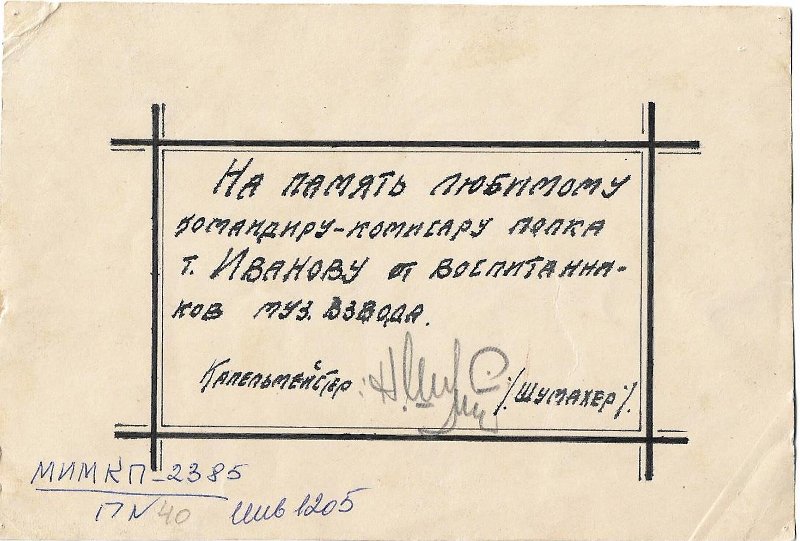 На память любимому
командиру-комисару полка
т. Иванову от воспитанни-
ков муз. взвода.
Капельмейстер: /Шумахер/.
МИМКП-2385
ПN 40 инв 1205